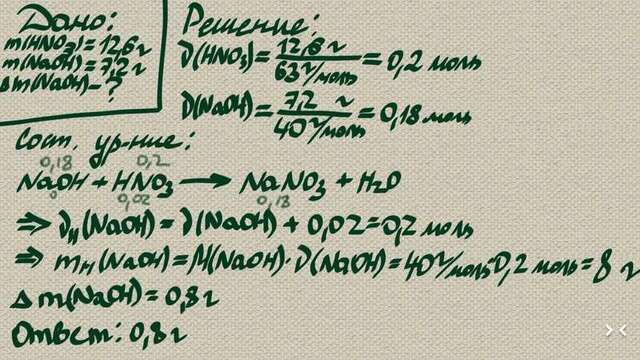 Дано:
m(HNO₃)=12,6г
m(NaOH)=7,2г
Δm(NaOH)-?
Решение:
ν(HNO₃)=12,6 г/63 г/моль=0,2 моль
ν(NaOH)=7,2 г/40 г/моль=0,18 моль
Сост. ур-ние:
0,18 0,2
NaOH + HNO₃ → NaNO₃ + H₂O
0 0,02 0,18
⇒ νн(NaOH)=ν(NaOH)+0,02=0,2 моль
⇒ mн(NaOH)=M(NaOH)·ν(NaOH)=40 г/моль·0,2 моль=8 г
Δm(NaOH)=0,8г
Ответ: 0,8г